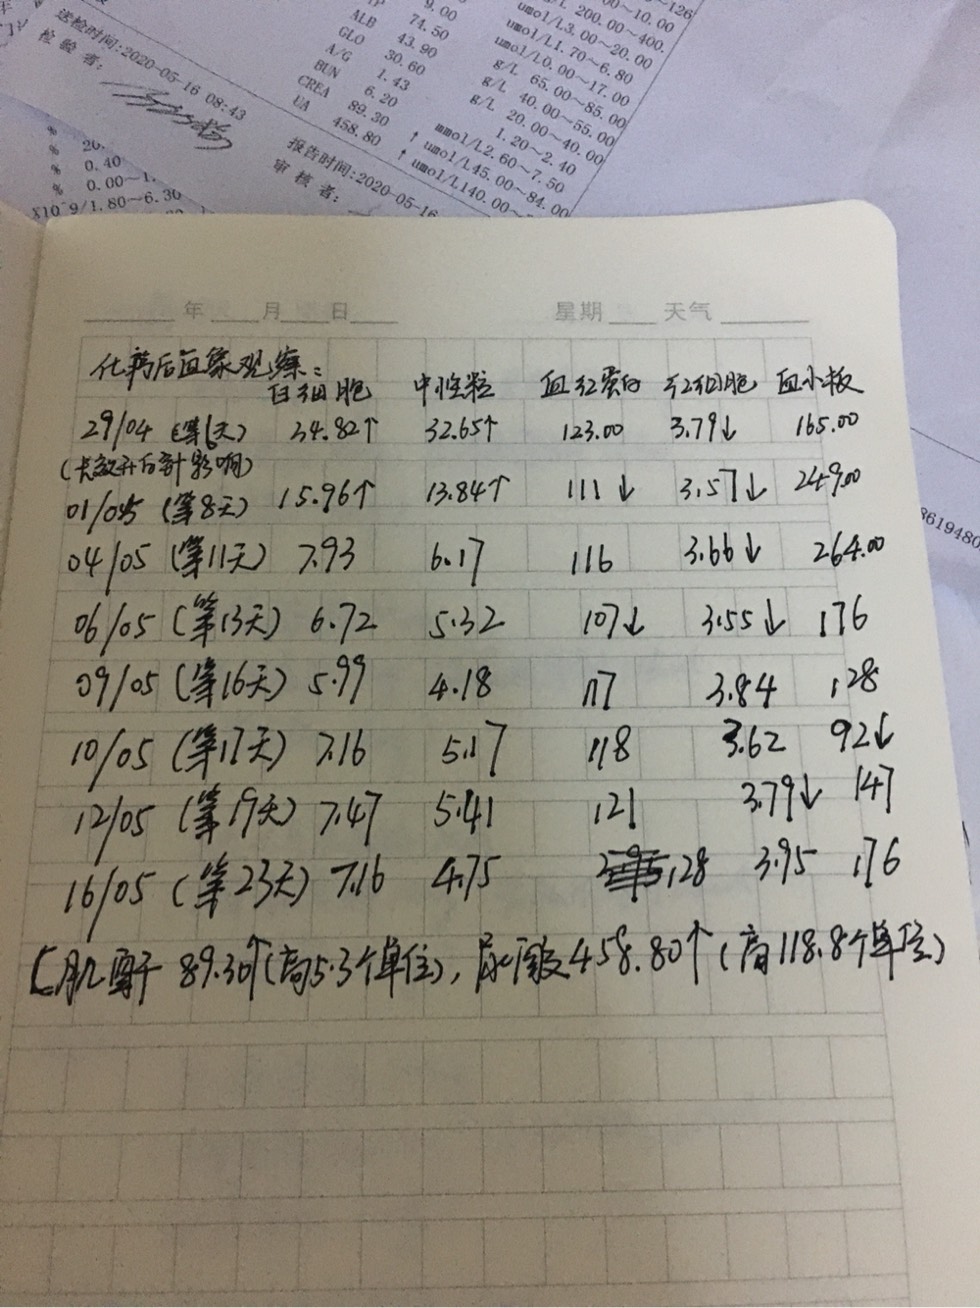 126
00~10.00
9.00 umol/L 200.00~400.
送检时间:2020-05-16 08:43
检 验 者:
ALB 74.50 umol/L3.00~20.00
GLO 43.90 umol/L1.70~6.80
A/G 30.60 umol/L0.00~17.00
BUN 1.43 g/L 65.00~85.00
CREA 6.20 g/L 40.00~55.00
UA 89.30 g/L 20.00~40.00
458.80 1.20~2.40
↑ mmol/L2.60~7.50
↑ umol/L45.00~84.00
umol/L140.00~
报告时间:2020-05-16
审 核 者:
% 20.
% 0.40
% 0.00~1.
X10^9/1.80~6.30
8619480
年 月 日 星期 天气
化疗后血象观察:
白细胞 中性粒 血红蛋白 红细胞 血小板
29/04 (第6天) 34.82↑ 32.65↑ 123.00 3.79↓ 165.00
(长效升白针影响)
01/05 (第8天) 15.96↑ 13.84↑ 111↓ 3.57↓ 249.00
04/05 (第11天) 7.93 6.17 116 3.66↓ 264.00
06/05 (第13天) 6.72 5.32 107↓ 3.55↓ 176
09/05 (第16天) 5.99 4.18 117 3.84 128
10/05 (第17天) 7.16 5.17 118 3.62 92↓
12/05 (第19天) 7.47 5.41 121 3.79↓ 147
16/05 (第23天) 7.16 4.75 128 3.95 176
[肌酐 89.30↑(高5.3个单位), 尿酸458.80↑(高118.8个单位)